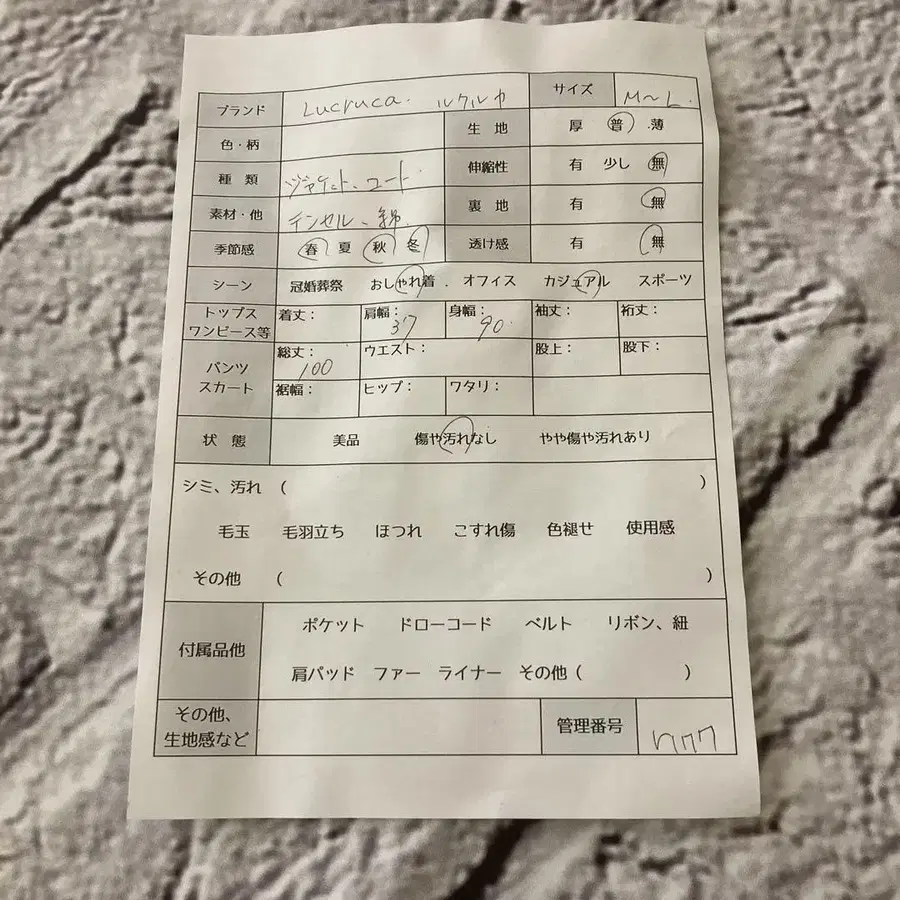 ブランド Lucruca. ルクルカ サイズ M〜L.
色・柄 生地 厚 普 薄
種類 ジャケット、コート 伸縮性 有 少し 無
素材・他 テンセル、綿 裏地 有 無
季節感 春 夏 秋 冬 透け感 有 無
シーン 冠婚葬祭 おしゃれ着 . オフィス カジュアル スポーツ
トップス
ワンピース等 着丈: 肩幅: 37 身幅: 90. 袖丈: 裄丈:
パンツ
スカート 総丈: 100 ウエスト: 股上: 股下:
裾幅: ヒップ: ワタリ:
状態 美品 傷や汚れなし やや傷や汚れあり
シミ、汚れ ( )
毛玉 毛羽立ち ほつれ こすれ傷 色褪せ 使用感
その他 ( )
付属品他 ポケット ドローコード ベルト リボン、紐
肩パッド ファー ライナー その他 ( )
その他、
生地感など 管理番号